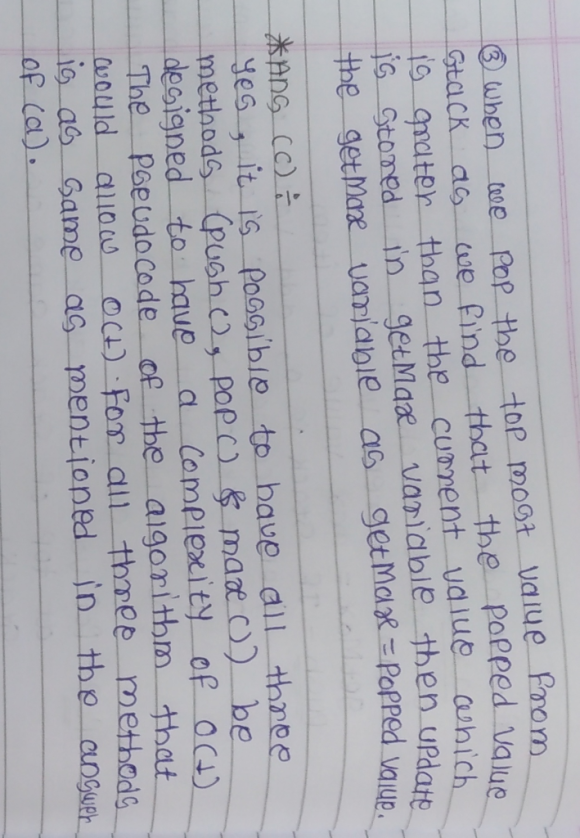 ③ when we pop the top most value from
stack as we find that the popped value
is grater than the current value which
is stored in getMax variable then update
the getMax variable as getMax = Popped value.
*Ans (c) ÷
yes, it is possible to have all three
methods (push(), pop() & max()) be
designed to have a complexity of O(1)
The pseudocode of the algorithm that
would allow O(1) for all three methods
is as same as mentioned in the answer
of (a).